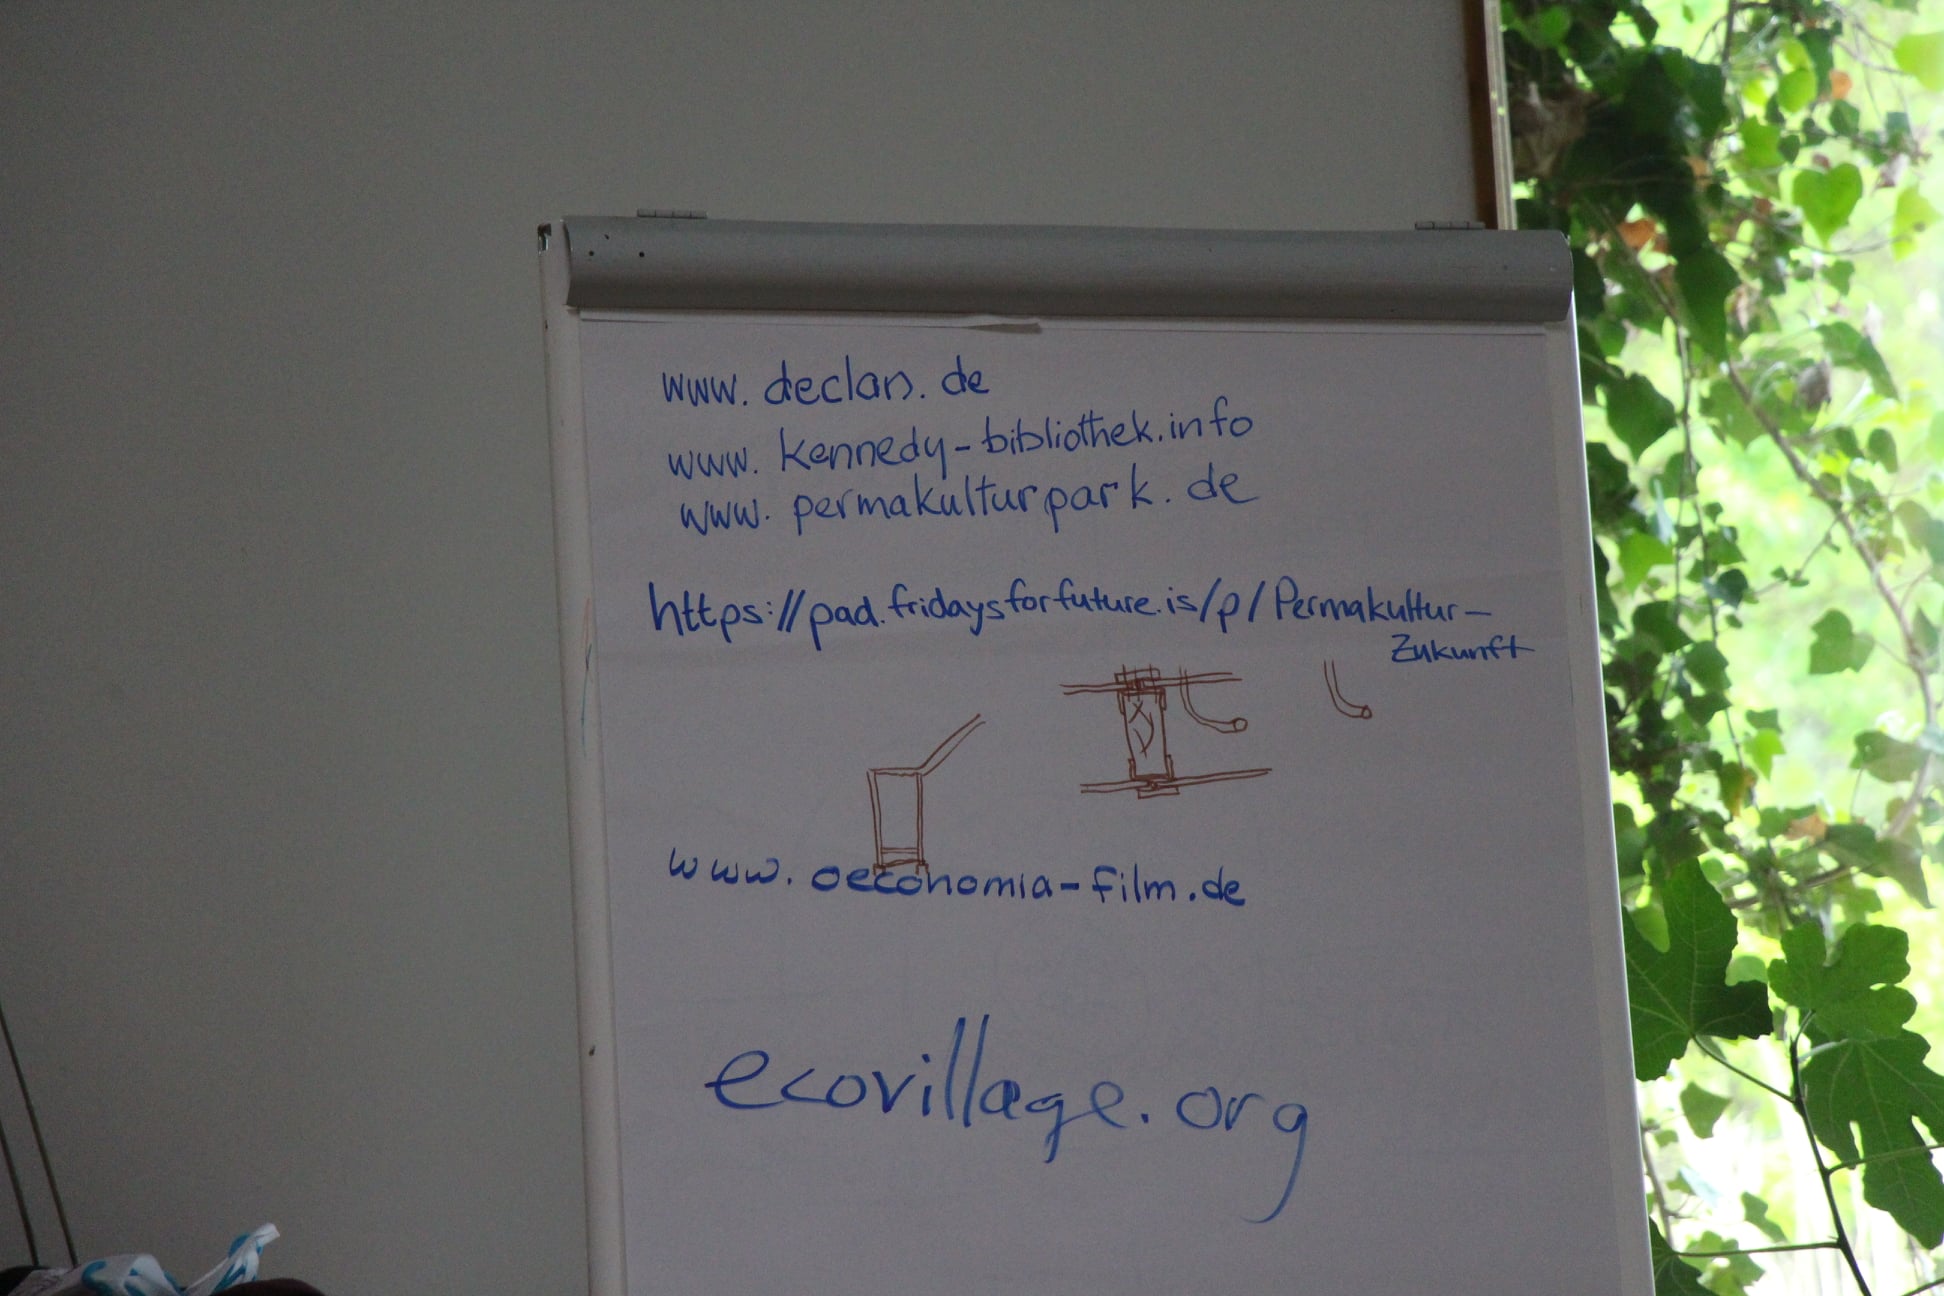 www.declan.de
www.kennedy-bibliothek.info
www.permakulturpark.de
https://pad.fridaysforfuture.is/p/Permakultur-
Zukunft
www.oeconomia-film.de
ecovillage.org